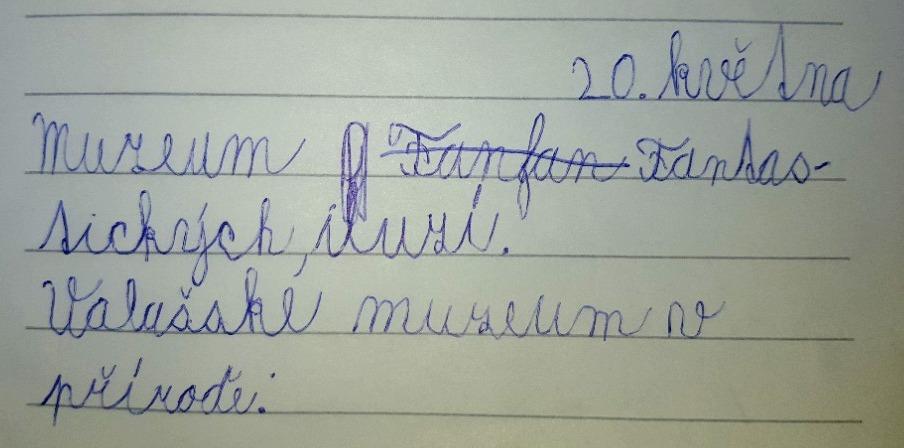 20. května
Muzeum Fanfan Fantas-
tických, iluzí.
Valašské muzeum v
přírodě.